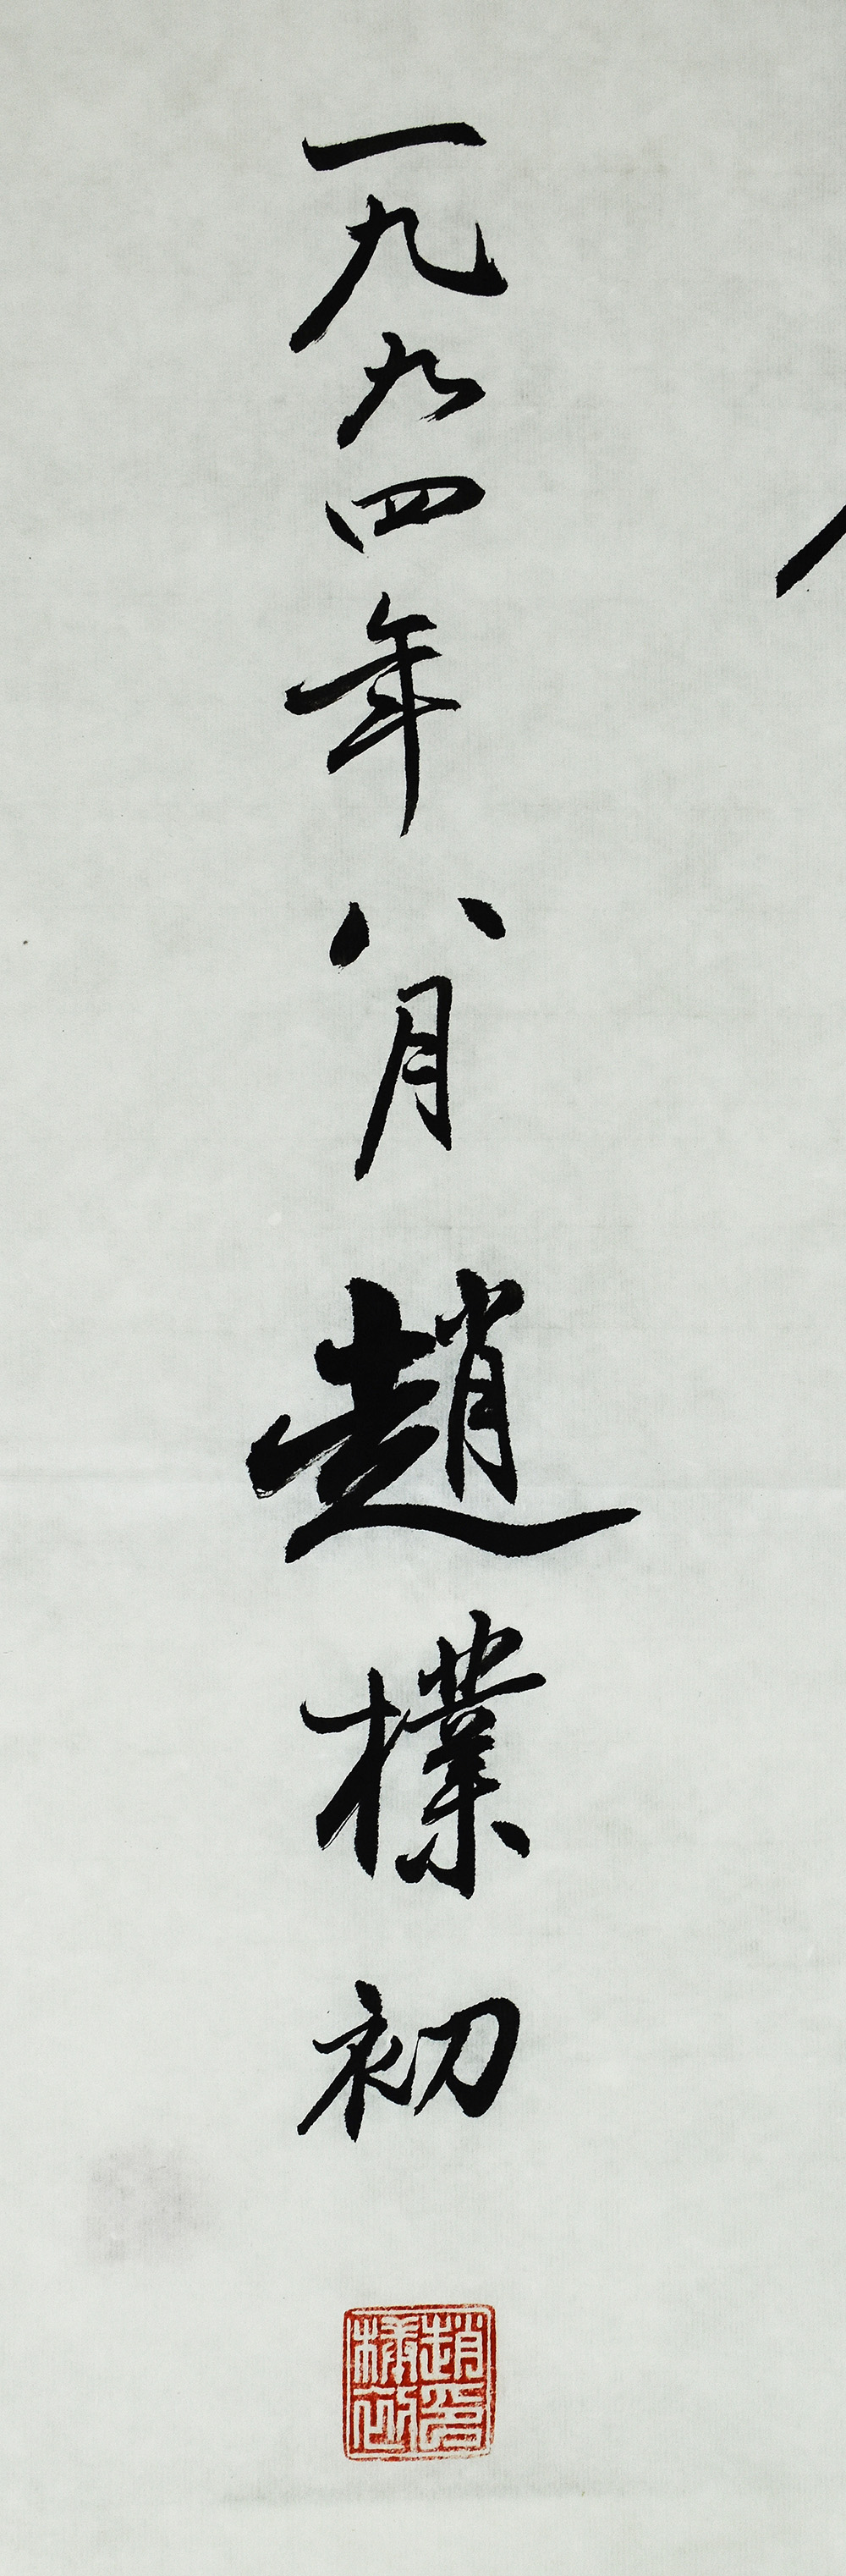 一九九四年八月趙樸初
趙樸初印